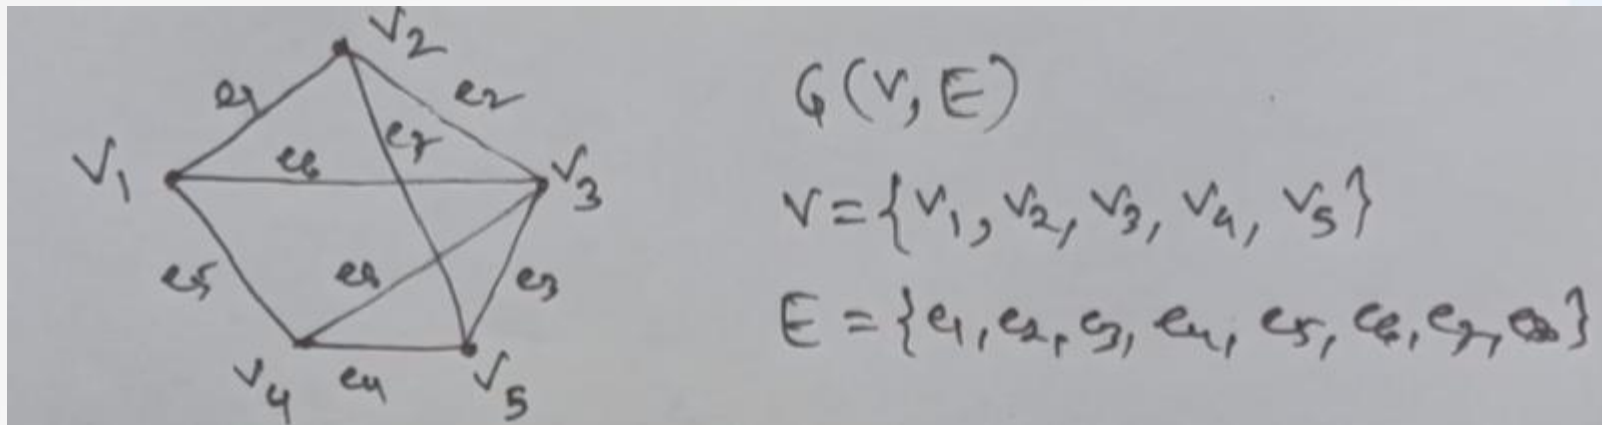 V2
e1
e2
e7
V1
e6
V3
e5
e8
e3
V4
e4
V5
G(V, E)
V = {V1, V2, V3, V4, V5}
E = {e1, e2, e3, e4, e5, e6, e7, e8}